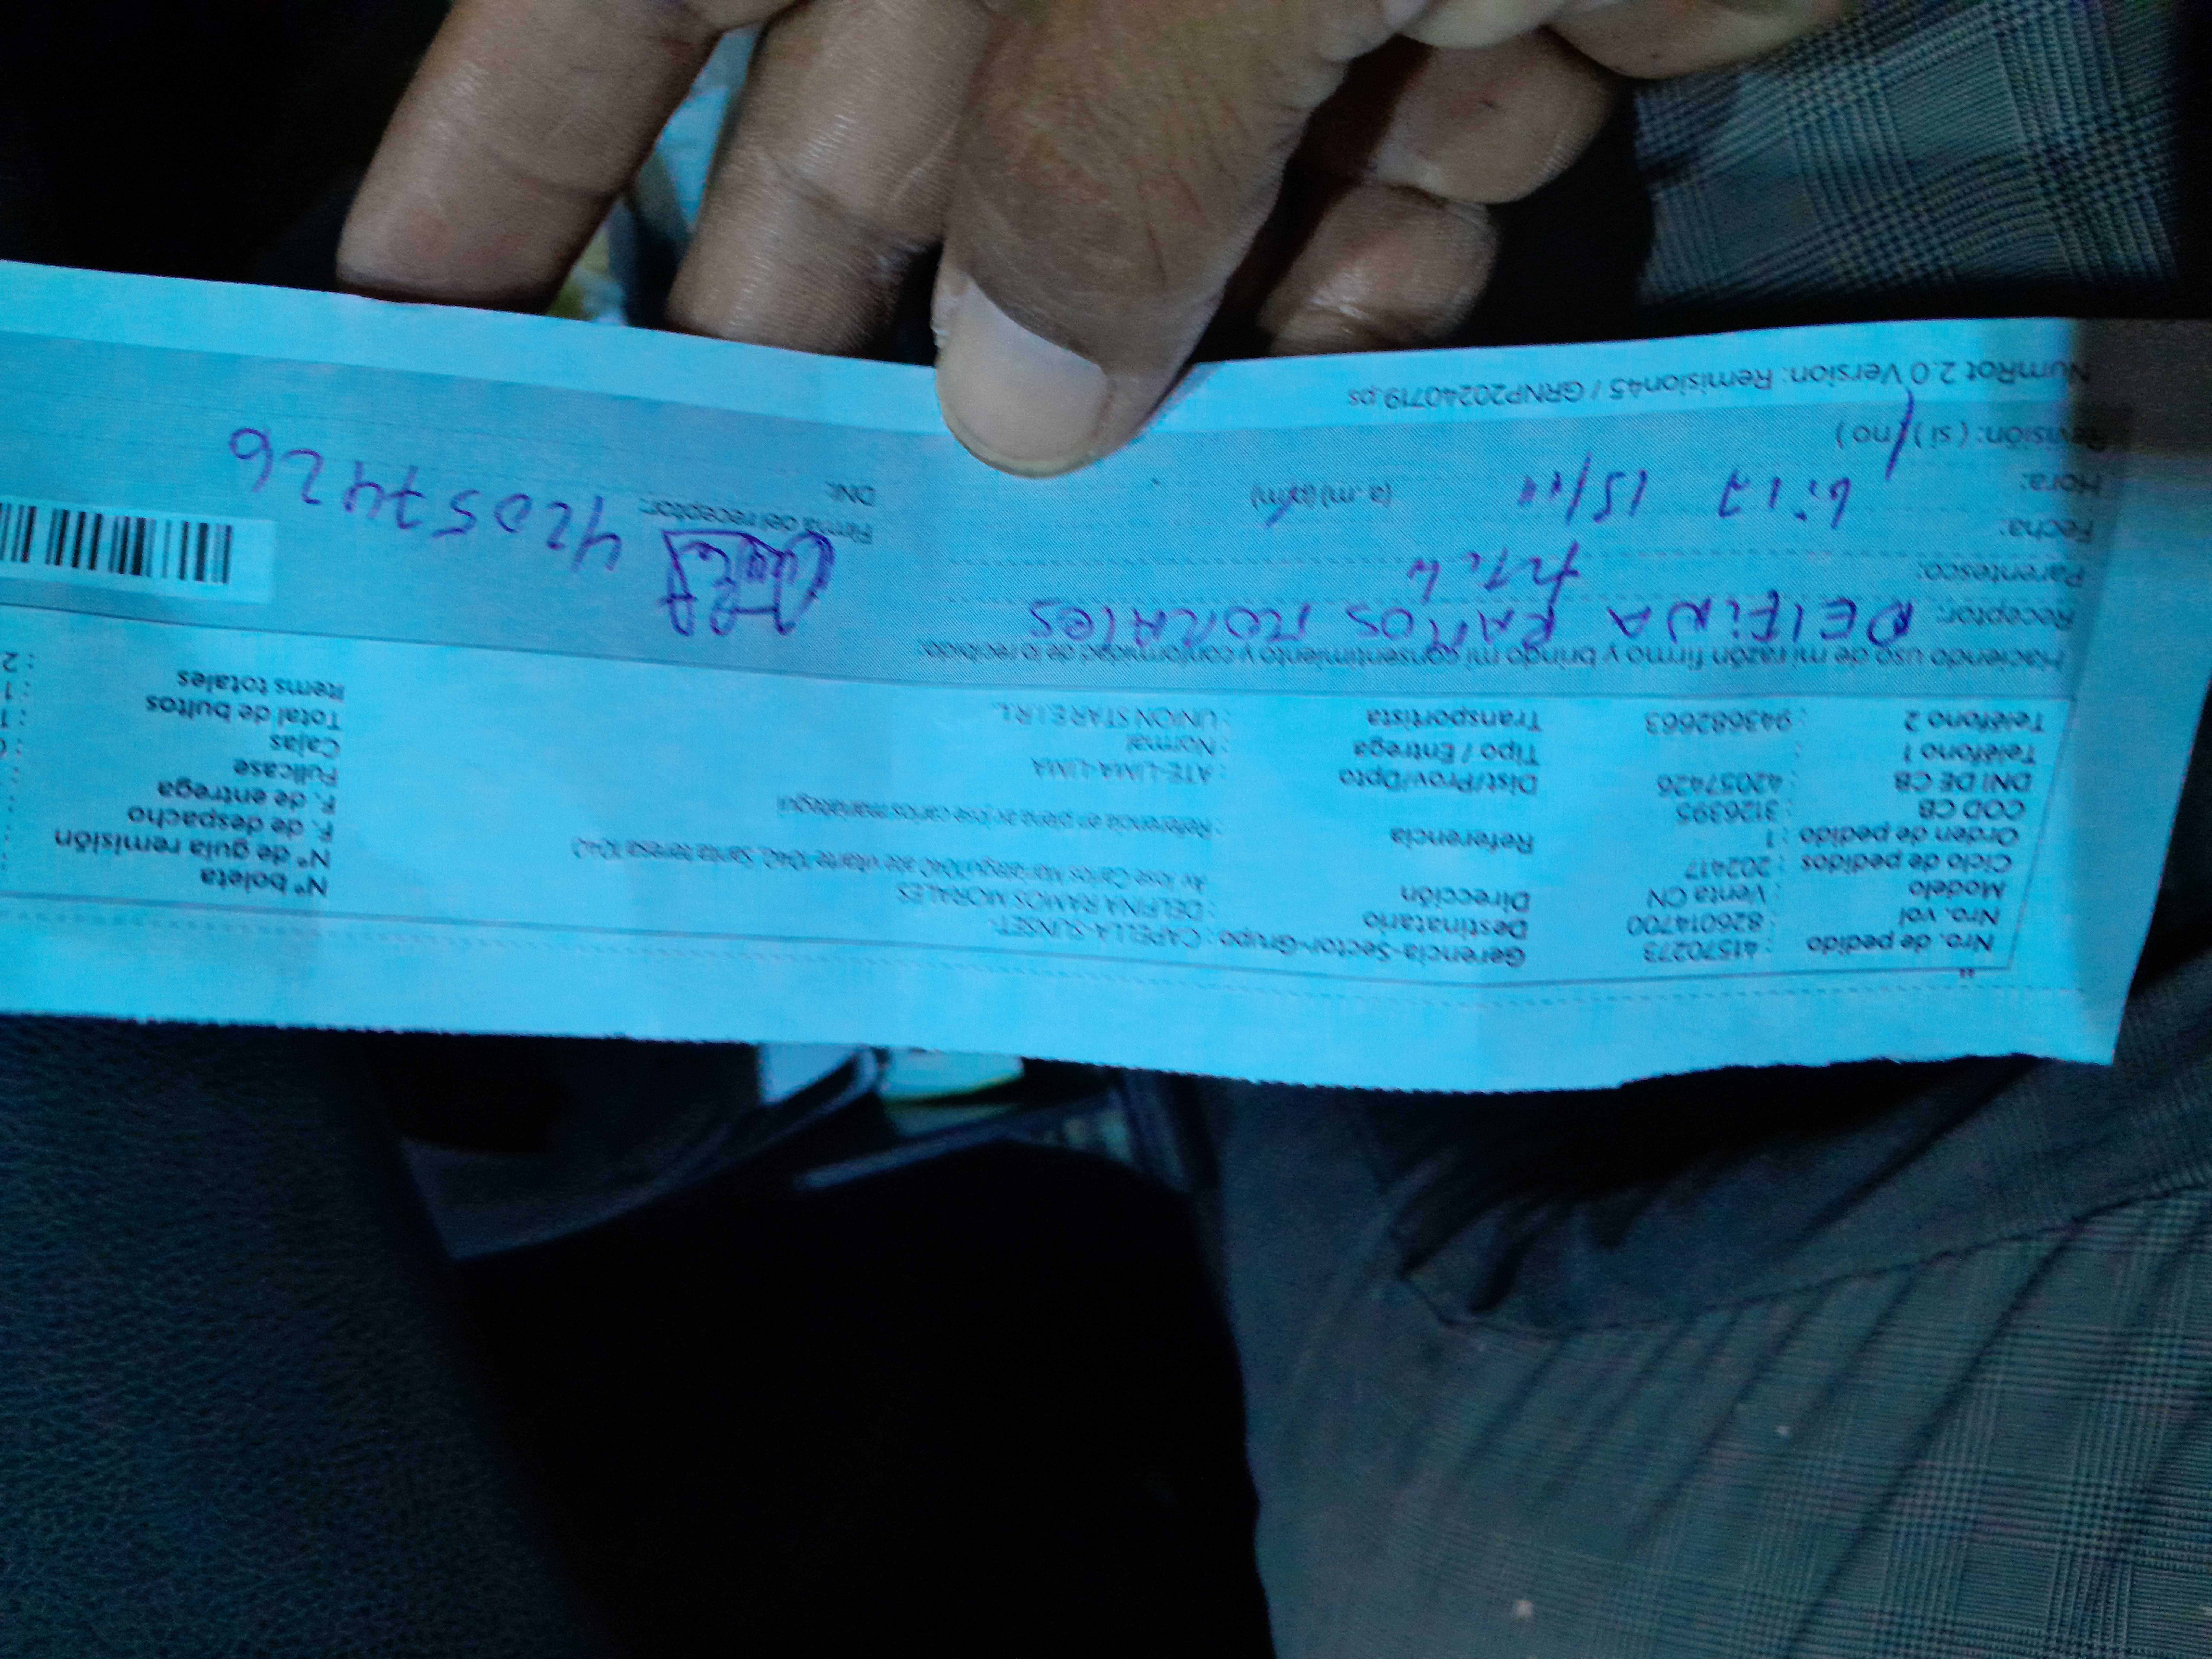 Nro. de pedido : 41570273
Nro. vol : 826014700
Modelo : Venta CN
Ciclo de pedidos : 202417
Orden de pedido : 1
COD CB : 3126395
DNI DE CB : 42057426
Teléfono 1 :
Teléfono 2 : 943682663
Gerencia-Sector-Grupo : CAPELLA-SUNSET-
Destinatario : DELFINA RAMOS MORALES
Dirección Av Jose Carlos Mariategui 1040 ate vitarte 1040, Santa teresa 1040
Referencia : Referencia en plena av jose carlos mariategui
Dist/Prov/Dpto : ATE-LIMA-LIMA
Tipo / Entrega : Normal
Transportista : UNION STAR E.I.R.L.
N° boleta :
N° de guía remisión :
F. de despacho :
F. de entrega :
Fullcase :
Cajas :
Total de bultos : 1
Items totales : 2
Haciendo uso de mi razón firmo y brindo mi consentimiento y conformidad de lo recibido:
Receptor: DELFINA RAMOS MORALES
Parentesco:
Fecha: 15/11
Hora: 6:17 (a.m) (p.m)
Revisión: ( si ) ( no )
Firma del receptor:
DNI: 42057426
NumRot 2.0 Version: Remision45 / GRNP20240719.ps